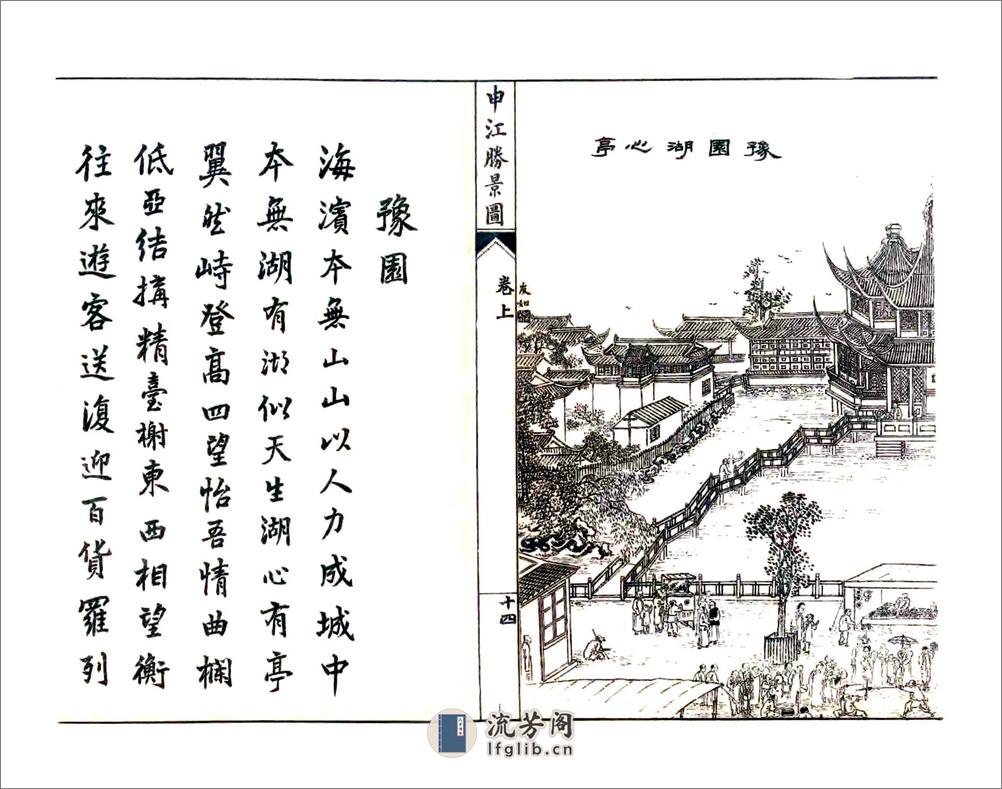 豫園湖心亭
友如
申江勝景圖
卷上
十四
豫園
海濱本無山山以人力成城中
本無湖有湖似天生湖心有亭
翼然峙登高四望怡吾情曲欄
低亞結搆精臺榭東西相望衡
往來遊客送復迎百貨羅列
流芳阁
lfglib.cn